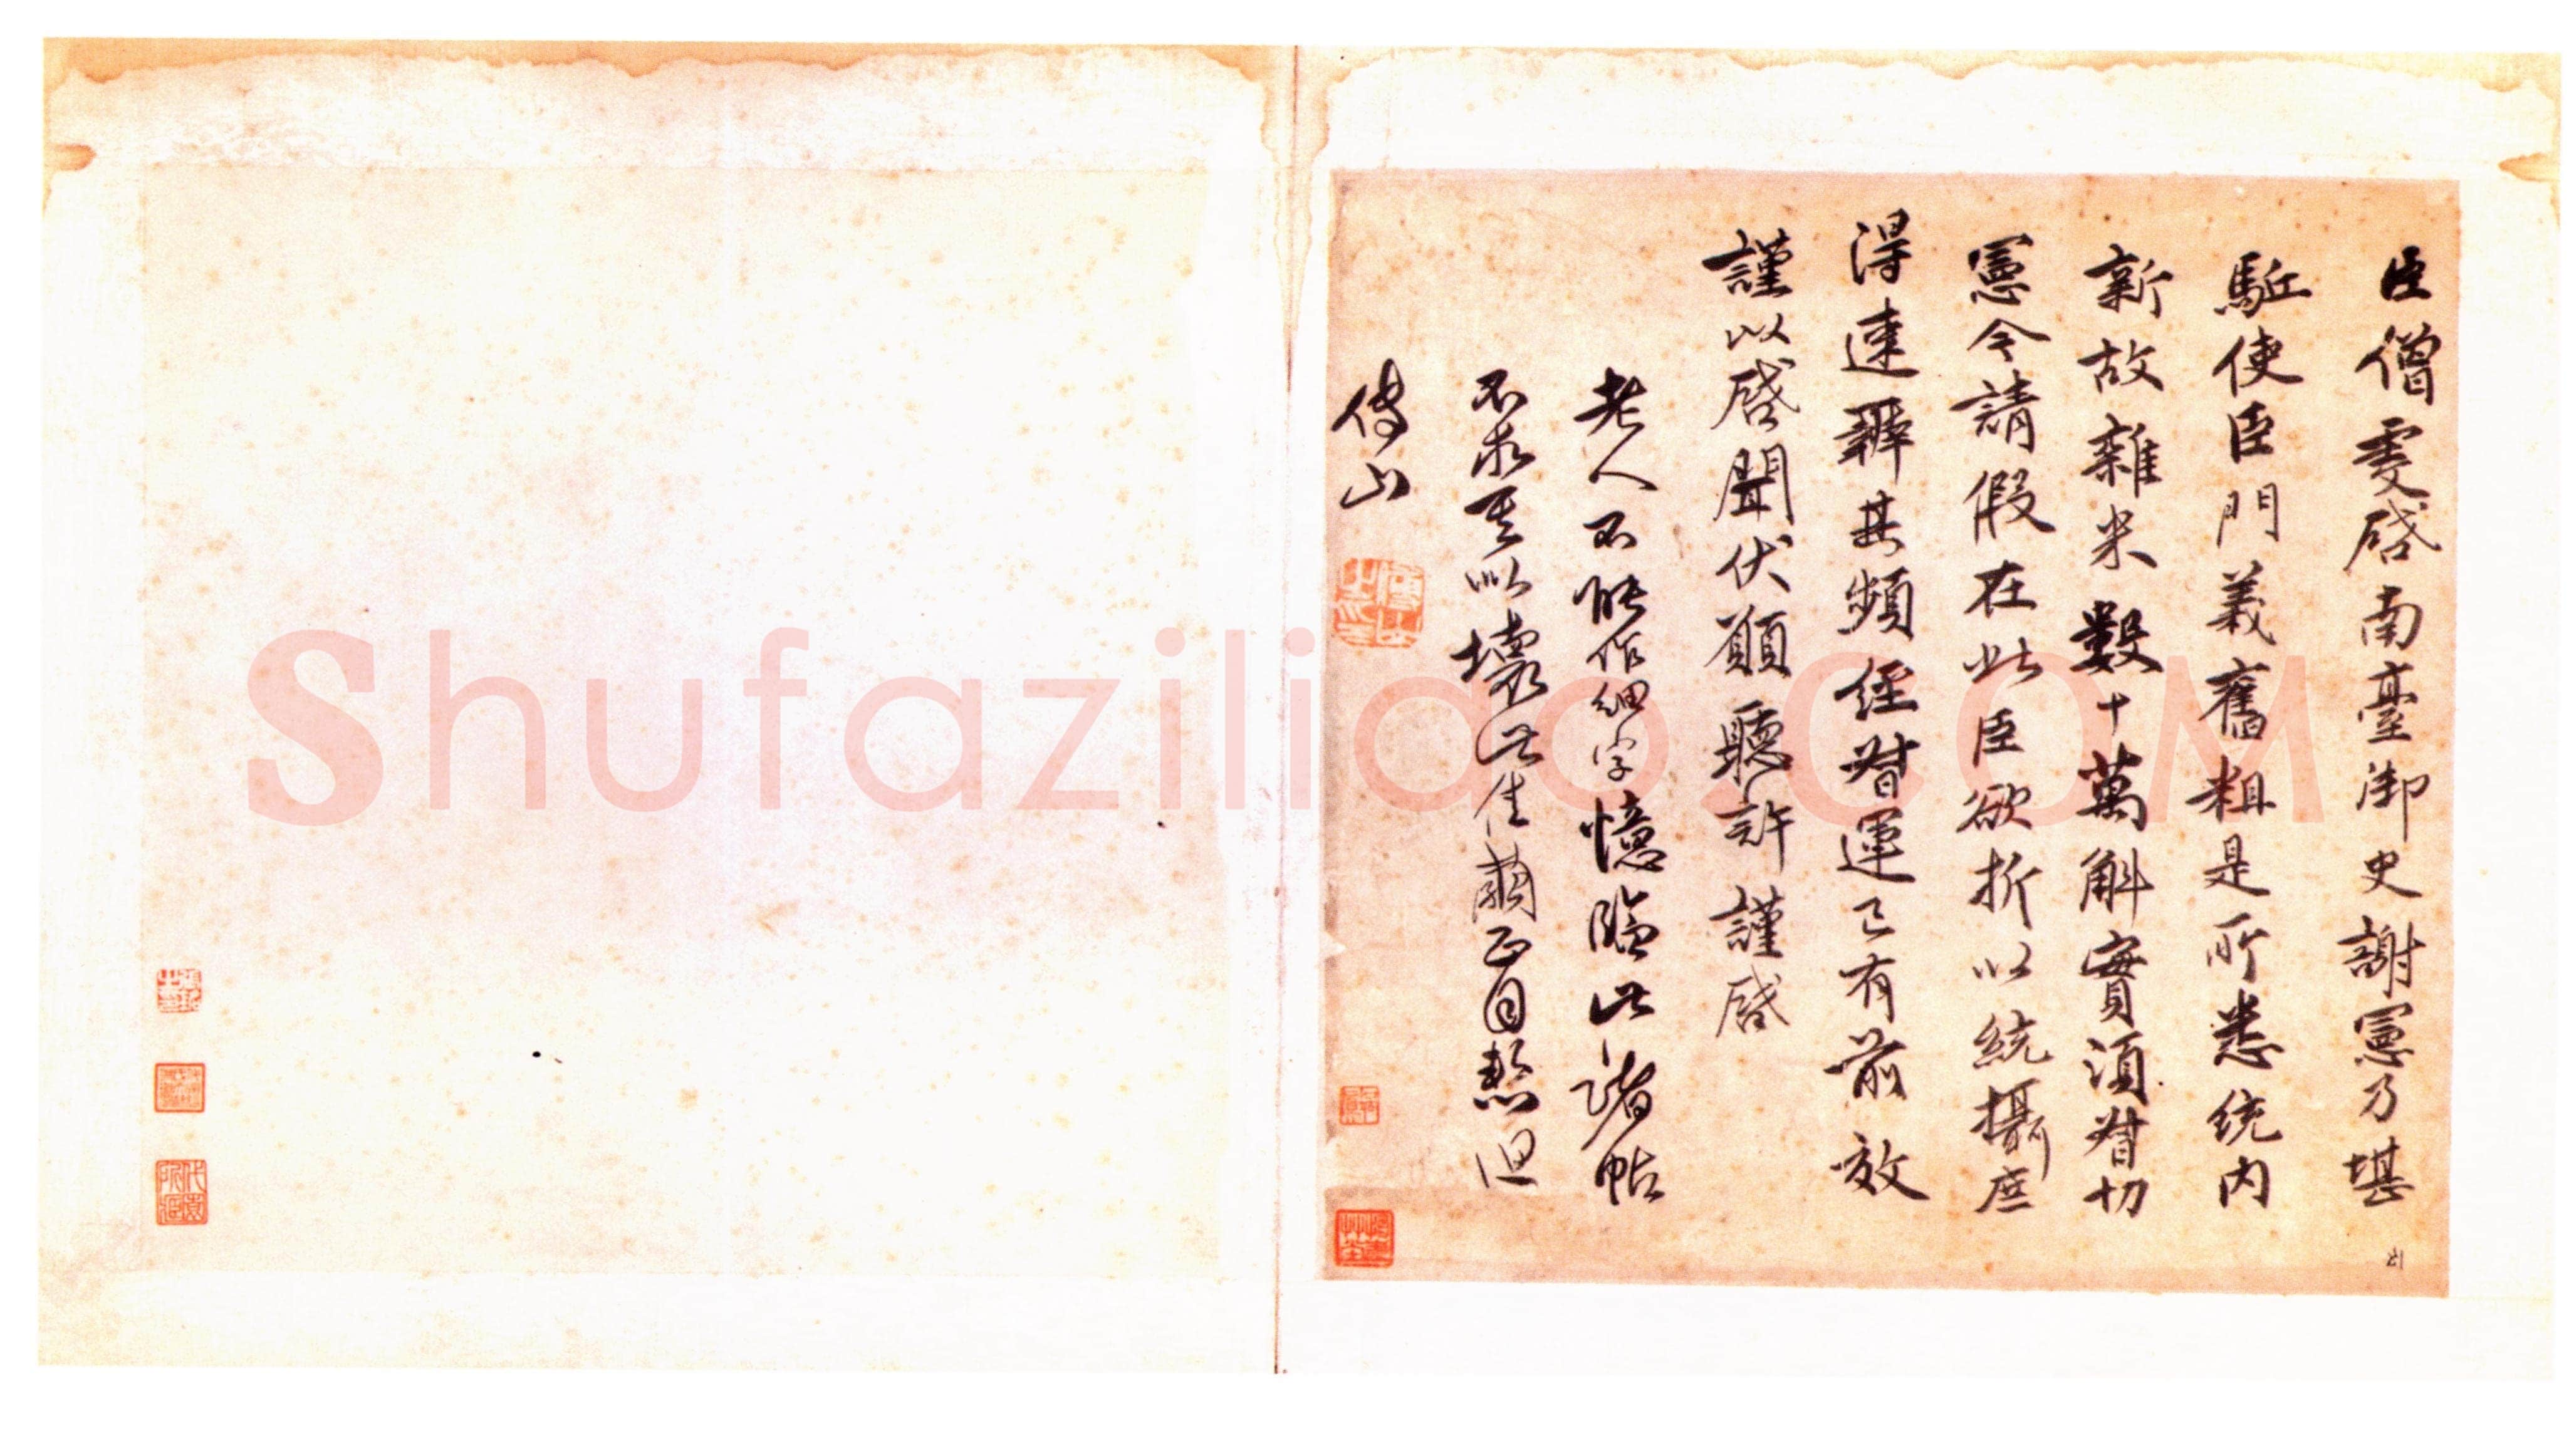 臣僧虔啓南臺御史謝憲乃堪
駈使臣門義舊粗是所悉統内
新故雜米數十萬斛實須督切
憲令請假在此臣欲折以統攝庶
得速辦其頻經督運已有前效
謹以啓聞伏願聽許謹啓
老人不能作細字憶臨此諸帖
不求其似壞此佳繭正自慙
傅山
傅山之印
Shufaziliao.COM